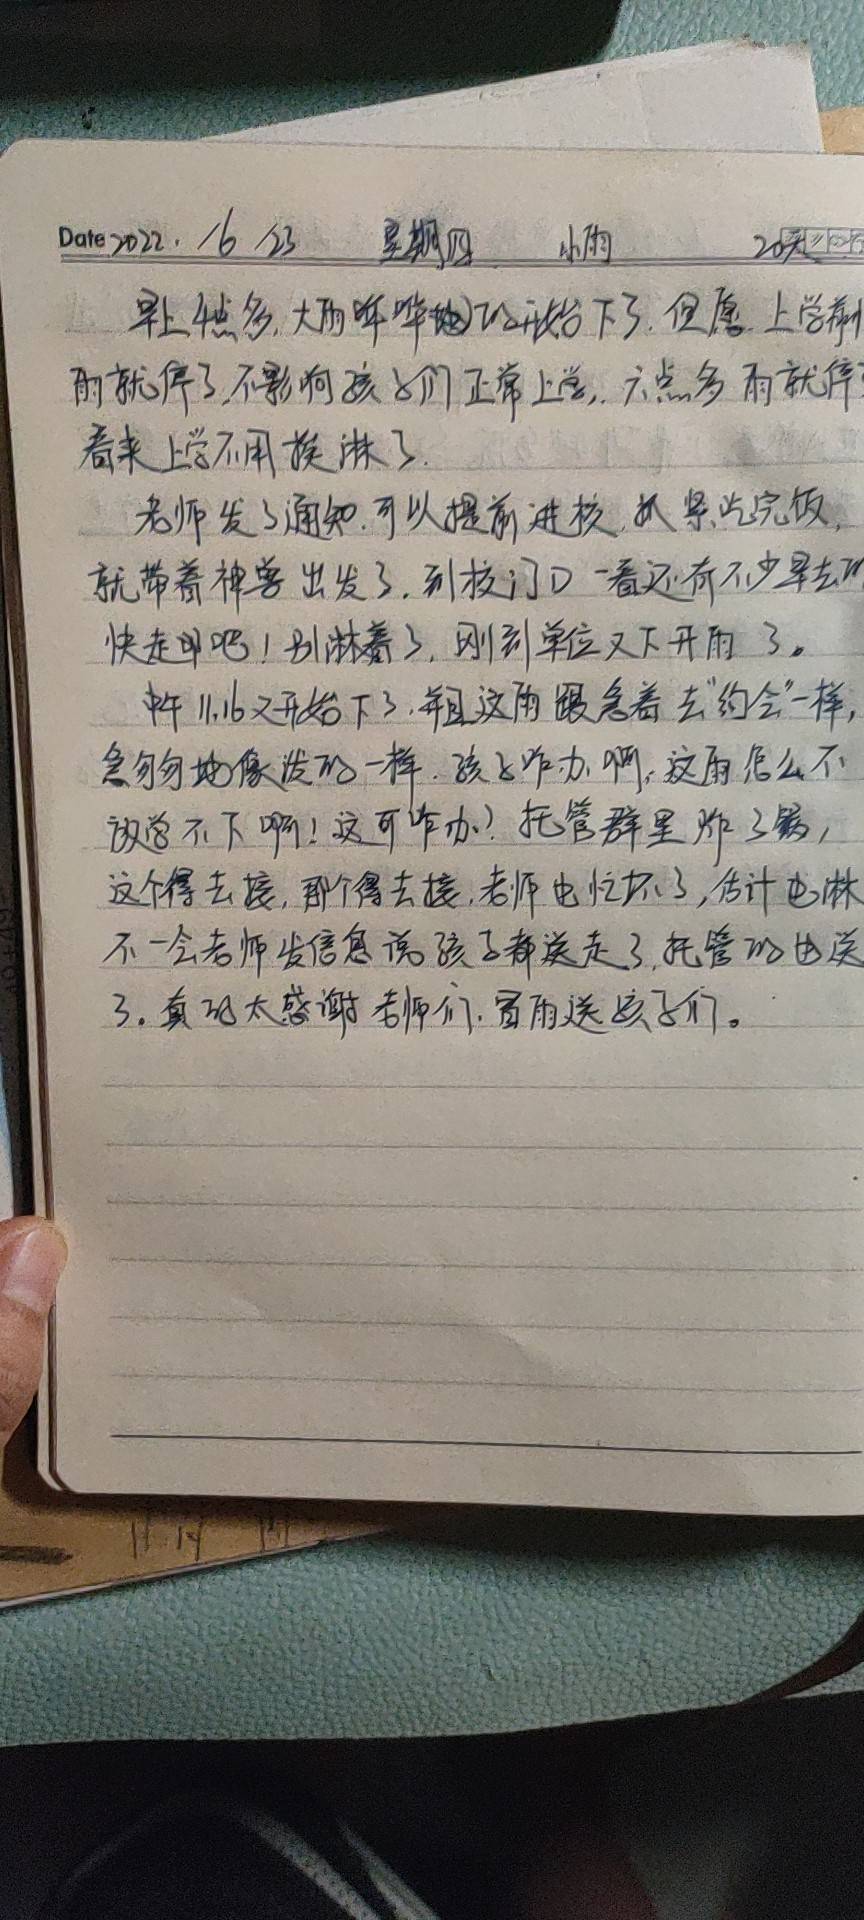 Date 2022. 6/23 星期四 小雨 20天
早上4点多,大雨哗哗地的开始下了.但愿.上学前
雨就停了,不影响孩子们正常上学,.六点多雨就停
看来上学不用挨淋了.
老师发了通知.可以提前进校.抓紧吃完饭,
就带着神兽出发了.到校门口一看还有不少早去的
快走吧!别淋着了,刚到单位又下开雨了。
中午11.16又开始下了.并且这雨跟急着去“约会”一样,
急匆匆地像泼的一样.孩子咋办啊.这雨怎么不
放学不下啊!这可咋办?托管群里炸了锅,
这个得去接,那个得去接.老师也忙坏了,估计也淋
不一会老师发信息说孩子都送走了.托管的也送
了。真的太感谢老师们.冒雨送孩子们。